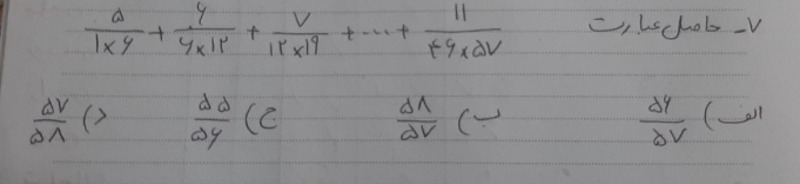 ۷- حاصل عبارت ۵/(۱×۶) + ۶/(۶×۱۲) + ۷/(۱۲×۱۹) + ... + ۱۱/(۴۶×۵۷)
الف) ۵۶/۵۷ ب) ۵۸/۵۷ ج) ۵۵/۵۶ د) ۵۷/۵۸